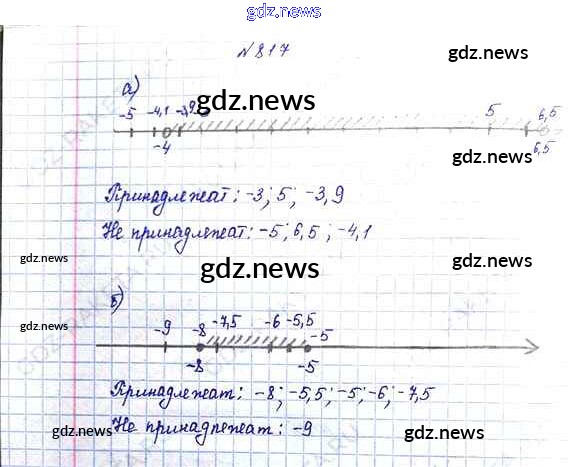 gdz.news
N 817
gdz.news
а)
-5 -4,1 -3,9 5 6,5
gdz.news
-4 6,5
gdz.news
Принадлежат: -3; 5; -3,9
Не принадлежат: -5; 6,5; -4,1
gdz.news gdz.news gdz.news
б)
-9 -8 -7,5 -6 -5,5 -5
gdz.news
-8 -5
Принадлежат: -8; -5,5; -5; -6; -7,5
Не принадлежат: -9
gdz.news gdz.news gdz.news